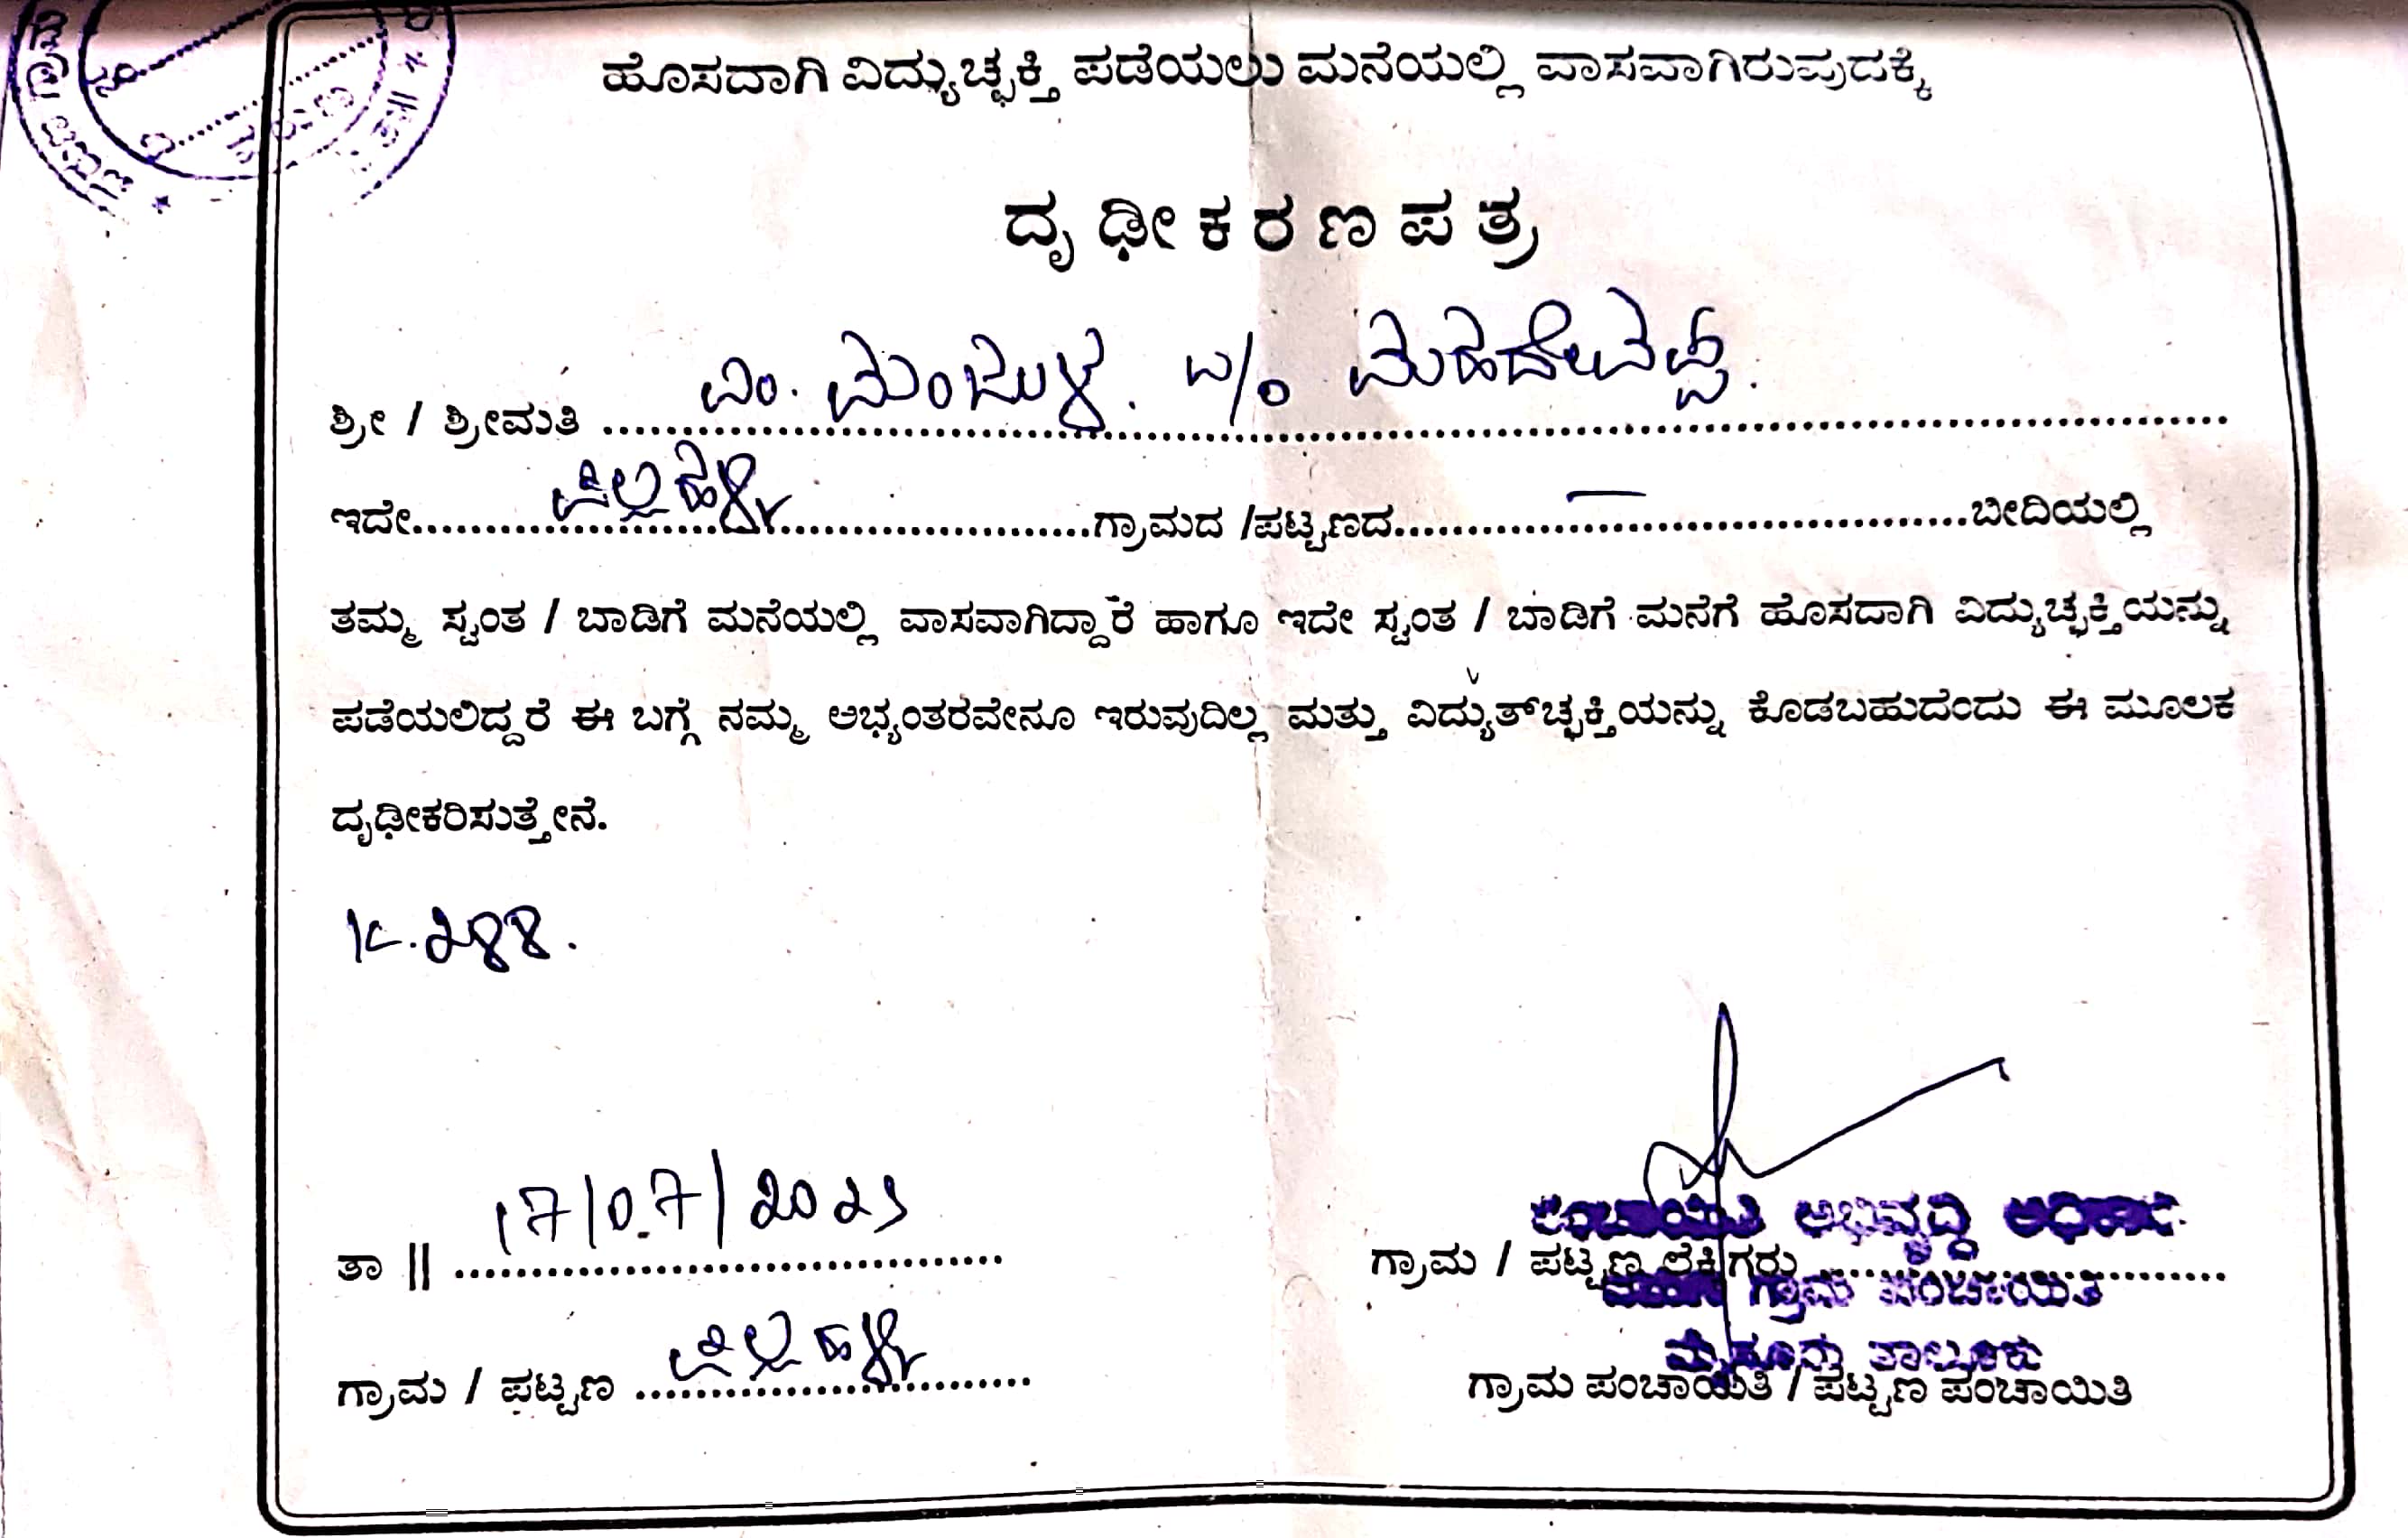 ಹೊಸದಾಗಿ ವಿದ್ಯುಚ್ಛಕ್ತಿ ಪಡೆಯಲು ಮನೆಯಲ್ಲಿ ವಾಸವಾಗಿರುವುದಕ್ಕೆ
ದೃಢೀಕರಣಪತ್ರ
ಶ್ರೀ / ಶ್ರೀಮತಿ ಎಂ. ಮಂಜುಳ. ಮಹದೇವಪ್ಪ.
ಇದೇ..........ಗ್ರಾಮದ /ಪಟ್ಟಣದ..........ಬೀದಿಯಲ್ಲಿ
ತಮ್ಮ ಸ್ವಂತ / ಬಾಡಿಗೆ ಮನೆಯಲ್ಲಿ ವಾಸವಾಗಿದ್ದಾರೆ ಹಾಗೂ ಇದೇ ಸ್ವಂತ / ಬಾಡಿಗೆ ಮನೆಗೆ ಹೊಸದಾಗಿ ವಿದ್ಯುಚ್ಛಕ್ತಿಯನ್ನು
ಪಡೆಯಲಿದ್ದರೆ ಈ ಬಗ್ಗೆ ನಮ್ಮ ಅಭ್ಯಂತರವೇನೂ ಇರುವುದಿಲ್ಲ ಮತ್ತು ವಿದ್ಯುತ್‌ಚ್ಛಕ್ತಿಯನ್ನು ಕೊಡಬಹುದೆಂದು ಈ ಮೂಲಕ
ದೃಢೀಕರಿಸುತ್ತೇನೆ.
ತಾ || 17/07/2023
ಪಂಚಾಯಿತಿ ಅಭಿವೃದ್ಧಿ ಅಧಿಕಾರಿ
ಗ್ರಾಮ / ಪಟ್ಟಣ ಲೆಕ್ಕಿಗರು ..........
ಗ್ರಾಮ ಪಂಚಾಯಿತಿ
ಮೈಸೂರು ತಾಲ್ಲೂಕು
ಗ್ರಾಮ / ಪಟ್ಟಣ ..........
ಗ್ರಾಮ ಪಂಚಾಯಿತಿ / ಪಟ್ಟಣ ಪಂಚಾಯಿತಿ